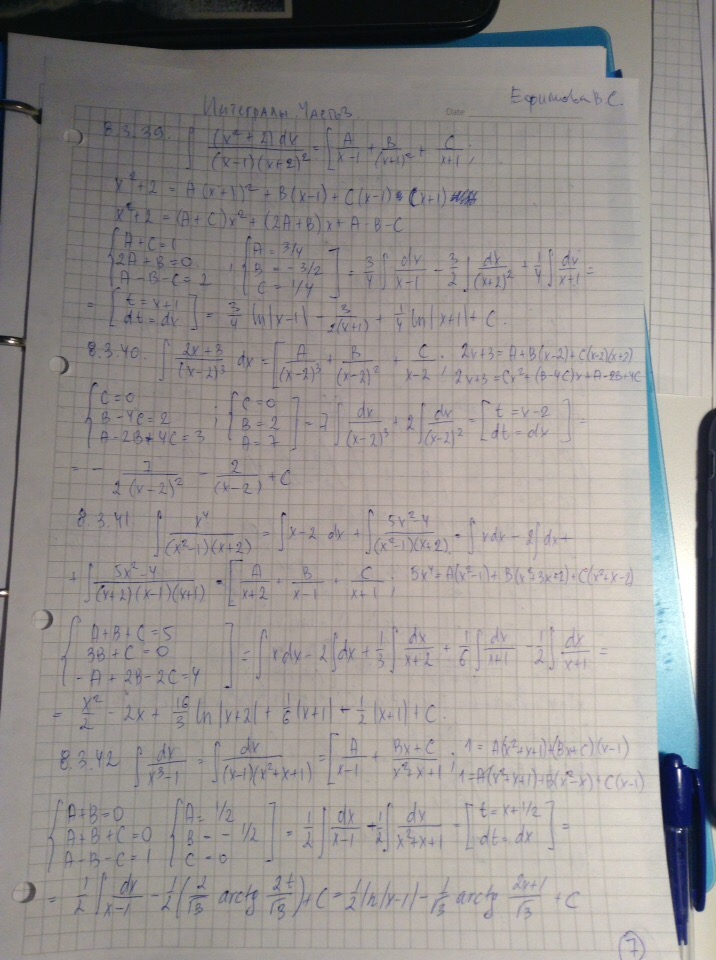 Интегралы. Часть 3. Date Ефимова В.С.
8.3.39. ∫ (x²+2)dx / (x-1)(x+2)² = [ A/(x-1) + B/(x+1)² + C/(x+1) ;
x²+2 = A(x+1)² + B(x-1) + C(x-1)·(x+1)
x²+2 = (A+C)x² + (2A+B)x + A-B-C
{ A+C=1 ; 2A+B=0 ; A-B-C=2 ; { A=3/4 ; B=-3/2 ; C=1/4 ] = 3/4 ∫ dx/(x-1) - 3/2 ∫ dx/(x+2)² + 1/4 ∫ dx/(x+1) =
= [ t=x+1 ; dt=dx ] = 3/4 ln|x-1| - 3/2(x+1) + 1/4 ln|x+1| + C.
8.3.40. ∫ (2x+3)/(x-2)³ dx = [ A/(x-2)³ + B/(x-2)² + C/(x-2) ; 2x+3 = A+B(x-2)+C(x-2)(x+2)
2x+3 = Cx²+(B-4C)x+A-2B+4C
{ C=0 ; B-4C=2 ; A-2B+4C=3 ; { C=0 ; B=2 ; A=7 ] = 7 ∫ dx/(x-2)³ + 2 ∫ dx/(x-2)² = [ t=x-2 ; dt=dx ] =
= - 7/2(x-2)² - 2/(x-2) + C
8.3.41. ∫ x⁴/(x²-1)(x+2) = ∫ x-2 dx + ∫ (5x²-4)/(x²-1)(x+2) = ∫ xdx - 2∫dx +
+ ∫ (5x²-4)/(x+2)(x-1)(x+1) = [ A/(x+2) + B/(x-1) + C/(x+1) ; 5x⁴=A(x²-1)+B(x²+3x+2)+C(x²+x-2)
{ A+B+C=5 ; 3B+C=0 ; -A+2B-2C=4 ] = ∫ xdx - 2∫dx + 1/3 ∫ dx/(x+2) + 1/6 ∫ dx/(x+1) - 1/2 ∫ dx/(x+1) =
= x²/2 - 2x + 16/3 ln|x+2| + 1/6 |x+1| - 1/2 |x+1| + C.
8.3.42 ∫ dx/(x³-1) = ∫ dx/(x-1)(x²+x+1) = [ A/(x-1) + (Bx+C)/(x²+x+1) ; 1=A(x²+x+1)+(Bx+C)(x-1)
1=A(x²+x+1)+B(x²-x)+C(x-1)
{ A+B=0 ; A+B+C=0 ; A-B-C=1 { A=1/2 ; B=-1/2 ; C=0 ] = 1/2 ∫ dx/(x-1) - 1/2 ∫ dx/(x²+x+1) = [ t=x+1/2 ; dt=dx ] =
= 1/2 ∫ dx/(x-1) - 1/2 (2/√3 arctg 2t/√3) + C = 1/2 ln|x-1| - 1/√3 arctg (2x+1)/√3 + C
7